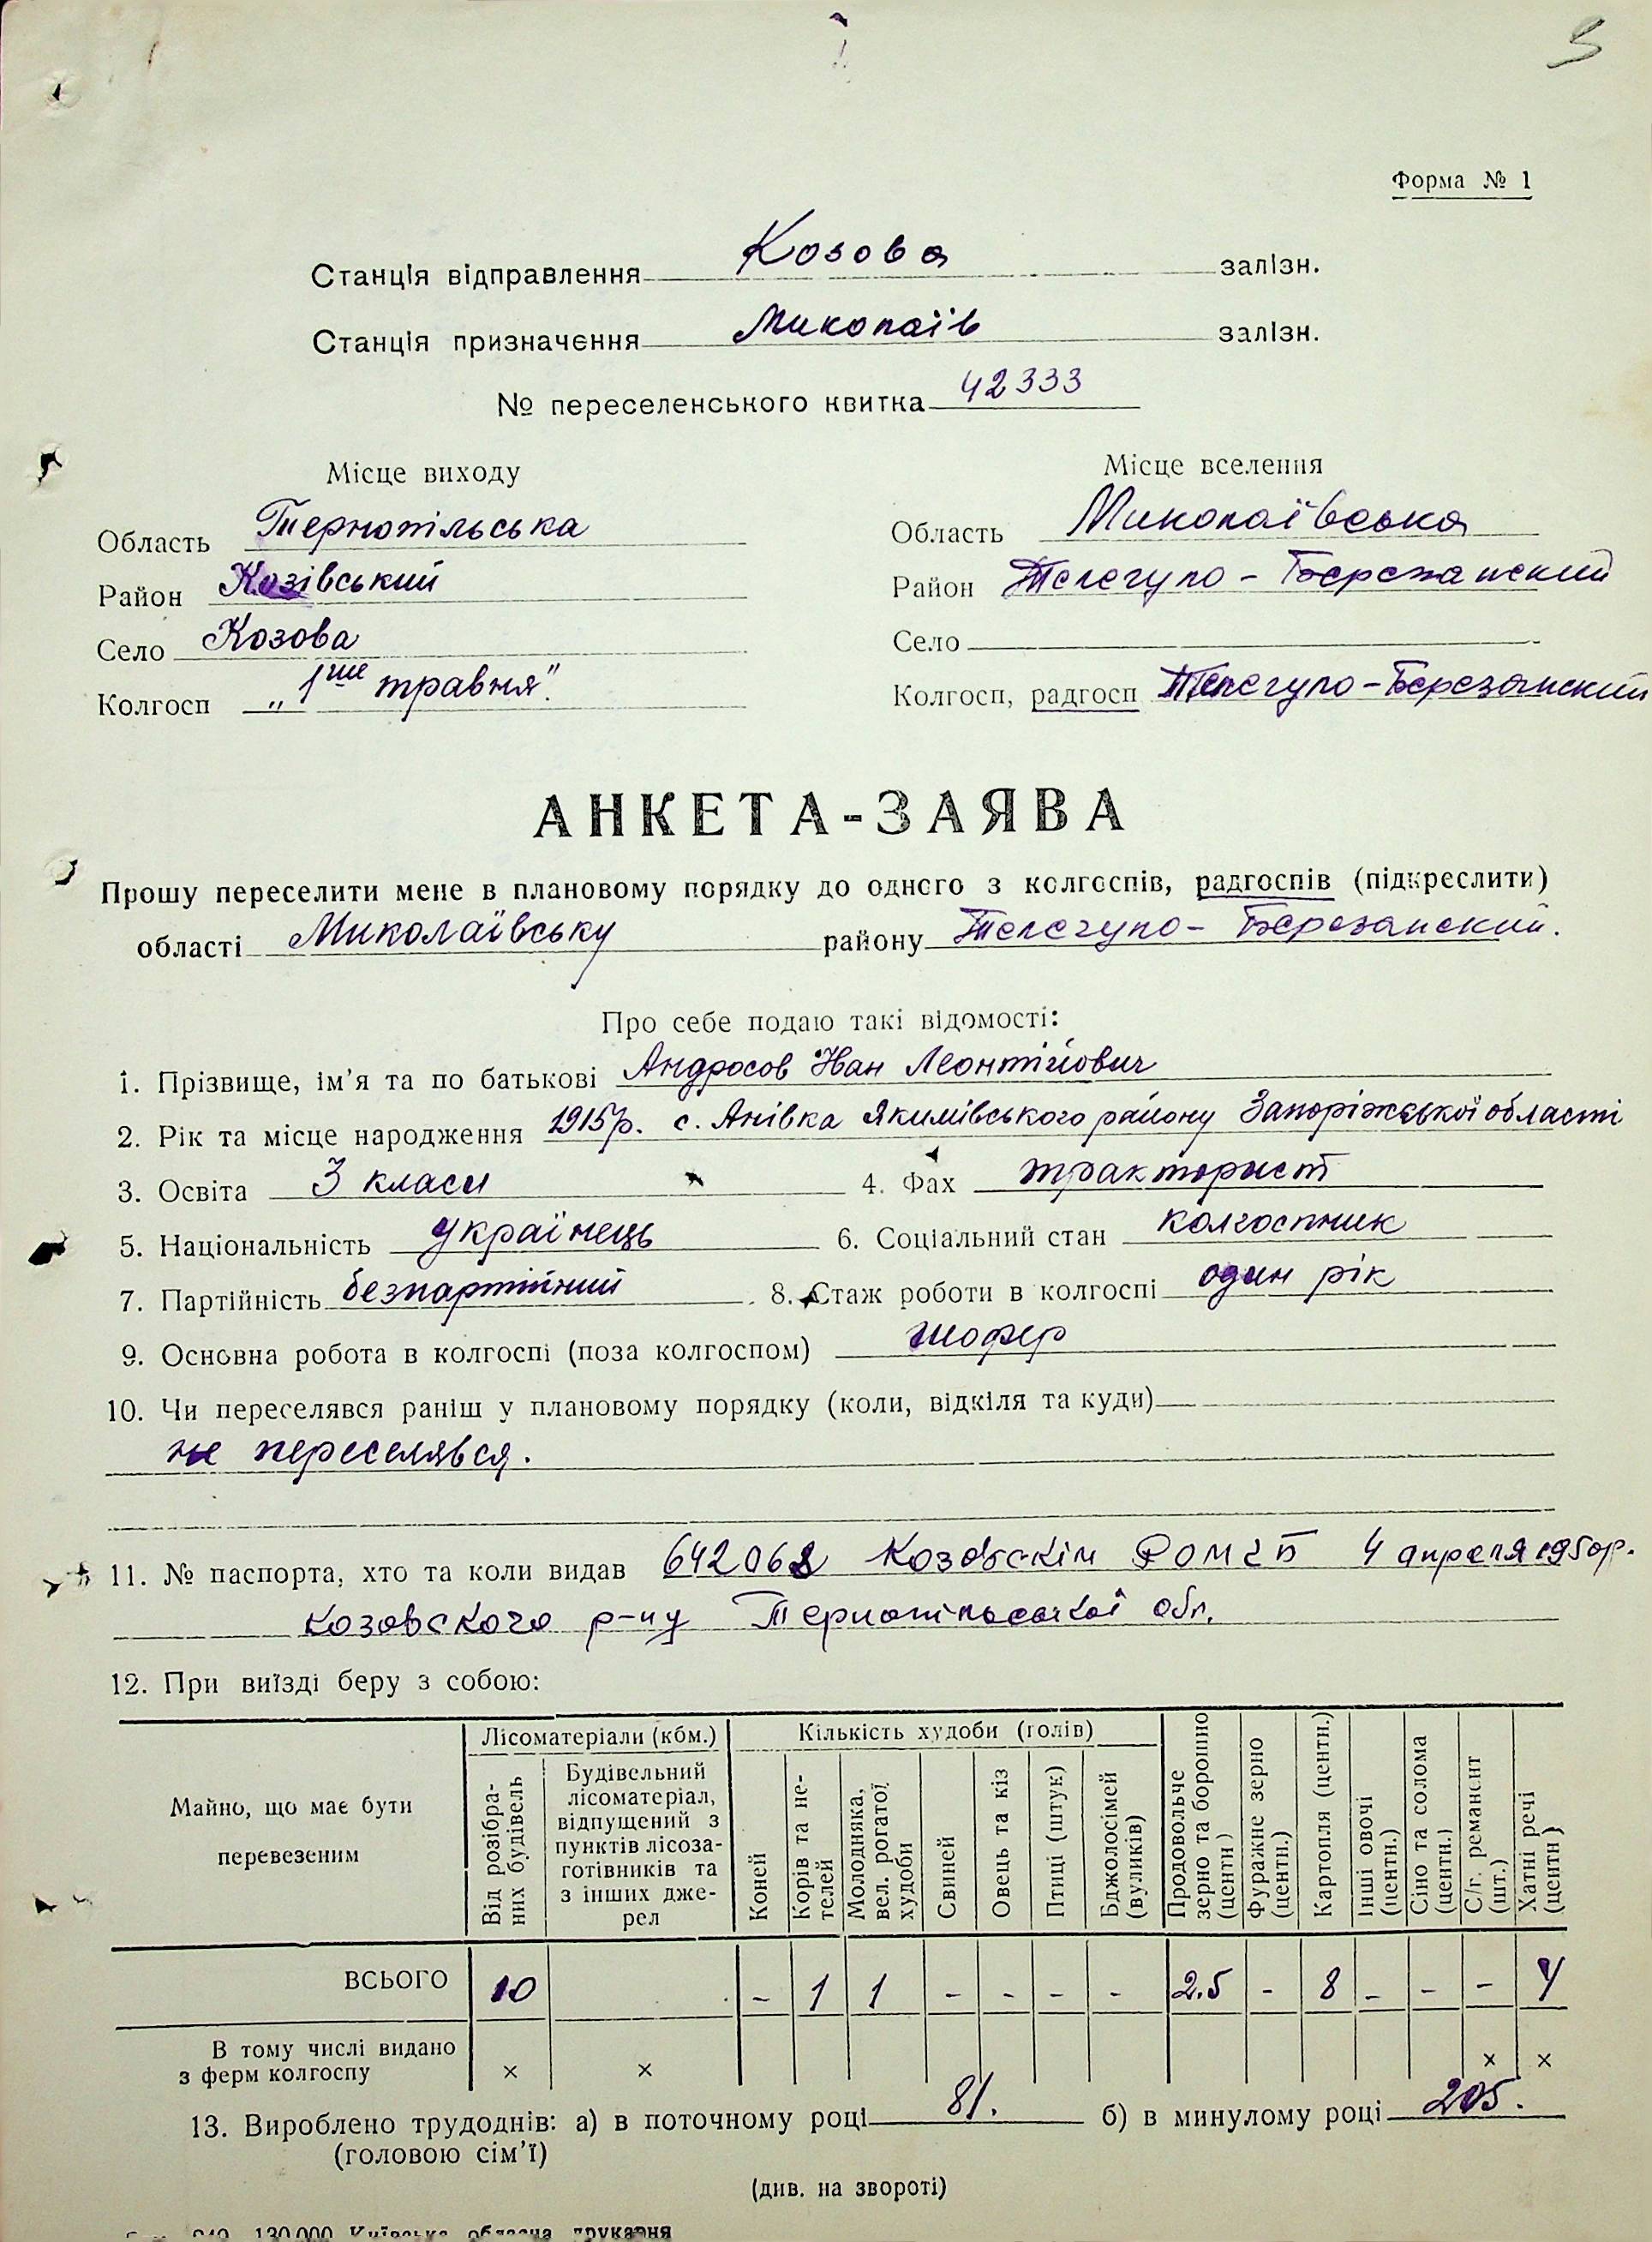 Форма № 1
Станція відправлення Козова залізн.
Станція призначення Миколаїв залізн.
№ переселенського квитка 42333
Місце виходу Місце вселення
Область Тернопільська Область Миколаївська
Район Козівський Район Телегуло-Березанский
Село Козова Село
Колгосп „1ше травня". Колгосп, радгосп Телегуло-Березанский
АНКЕТА-ЗАЯВА
Прошу переселити мене в плановому порядку до одного з колгоспів, радгоспів (підкреслити)
області Миколаївську району Телегуло-Березанский.
Про себе подаю такі відомості:
1. Прізвище, ім'я та по батькові Андросов Іван Леонтійович
2. Рік та місце народження 1915р. с. Анівка Якимівського району Запоріжської області
3. Освіта 3 класи 4. Фах тракторист
5. Національність українець 6. Соціальний стан колгоспник
7. Партійність безпартійний 8. Стаж роботи в колгоспі один рік
9. Основна робота в колгоспі (поза колгоспом) шофер
10. Чи переселявся раніш у плановому порядку (коли, відкіля та куди)
не переселявся.
11. № паспорта, хто та коли видав 642068 Козовскім РОМГБ 4 апреля 1950р.
Козовского р-ну Тернопільської обл.
12. При виїзді беру з собою:
Майно, що має бути перевезеним
Лісоматеріали (кбм.)
Від розібраних будівель
Будівельний лісоматеріал, відпущений з пунктів лісозаготівників та з інших джерел
Кількість худоби (голів)
Коней
Корів та нетелей
Молодняка, вел. рогатої худоби
Свиней
Овець та кіз
Птиці (штук)
Бджолосімей (вуликів)
Продовольче зерно та борошно (центн)
Фуражне зерно (центн.)
Картопля (центн.)
Інші овочі (центн.)
Сіно та солома (центн.)
С/г. реманент (шт.)
Хатні речі (центн)
ВСЬОГО 10 - 1 1 - - - - 2.5 - 8 - - - 4
В тому числі видано
з ферм колгоспу × × × ×
13. Вироблено трудоднів: а) в поточному році 81. б) в минулому році 205.
(головою сім'ї)
(див. на звороті)
130.000 Київська обласна друкарня